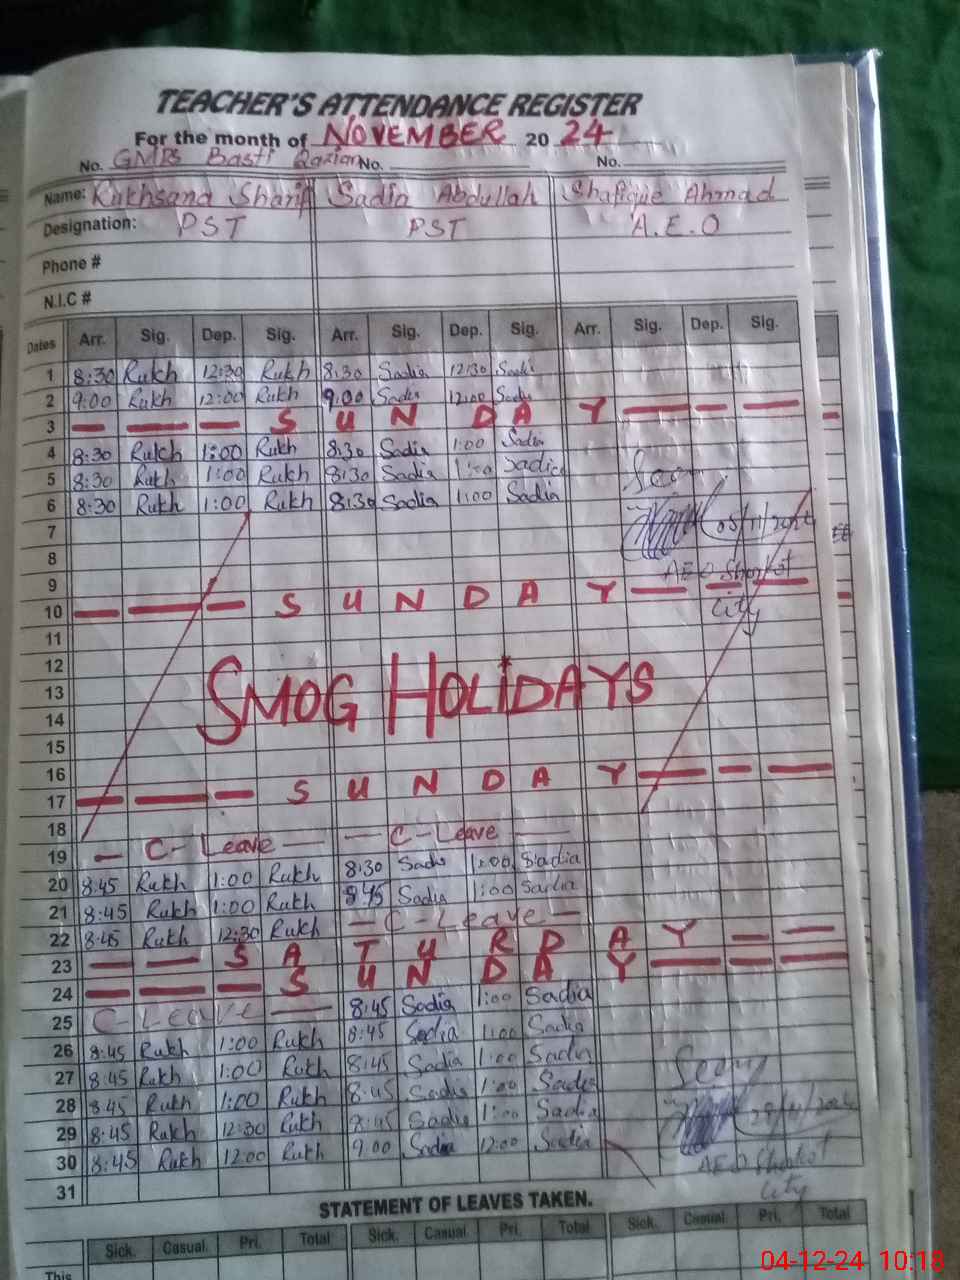 TEACHER'S ATTENDANCE REGISTER
For the month of NOVEMBER 20 24
No. GMPS Basti Qazian No. No.
Name: Rukhsana Sharif Sadia Abdullah Shafique Ahmad
Designation: PST PST A.E.O
Phone #
N.I.C #
Dates Arr. Sig. Dep. Sig. Arr. Sig. Dep. Sig. Arr. Sig. Dep. Sig.
1 8:30 Rukh 12:30 Rukh 8:30 Sadia 12:30 Sadia
2 9:00 Rukh 12:00 Rukh 9:00 Sadia 12:00 Sadia
3 — — — S U N D A Y — — —
4 8:30 Rukh 1:00 Rukh 8:30 Sadia 1:00 Sadia
5 8:30 Rukh 1:00 Rukh 8:30 Sadia 1:00 Sadia Seen
6 8:30 Rukh 1:00 Rukh 8:30 Sadia 1:00 Sadia
7 05/11/2024
8
9 AEO Shorkot
10 — — — S U N D A Y — — —
City
11
12
13 SMOG HOLiDAYS
14
15
16
17 — — — S U N D A Y — — —
18
19 — C- Leave — — C - Leave —
20 8:45 Rukh 1:00 Rukh 8:30 Sadia 1:00 Sadia
21 8:45 Rukh 1:00 Rukh 8:45 Sadia 1:00 Sadia
22 8:45 Rukh 12:30 Rukh — C - Leave —
23 — — S A T U R D A Y — —
24 — — — S U N D A Y — — —
25 C - Leave — 8:45 Sadia 1:00 Sadia
26 8:45 Rukh 1:00 Rukh 8:45 Sadia 1:00 Sadia
27 8:45 Rukh 1:00 Rukh 8:45 Sadia 1:00 Sadia Seen
28 8:45 Rukh 1:00 Rukh 8:45 Sadia 1:00 Sadia
29 8:45 Rukh 12:30 Rukh 8:45 Sadia 1:00 Sadia 28/11/2024
30 8:45 Rukh 12:00 Rukh 9:00 Sadia 12:00 Sadia AEO Shorkot
31 City
STATEMENT OF LEAVES TAKEN.
Sick. Casual. Pri. Total Sick. Casual. Pri. Total Sick. Casual. Pri. Total
This
04-12-24 10:18